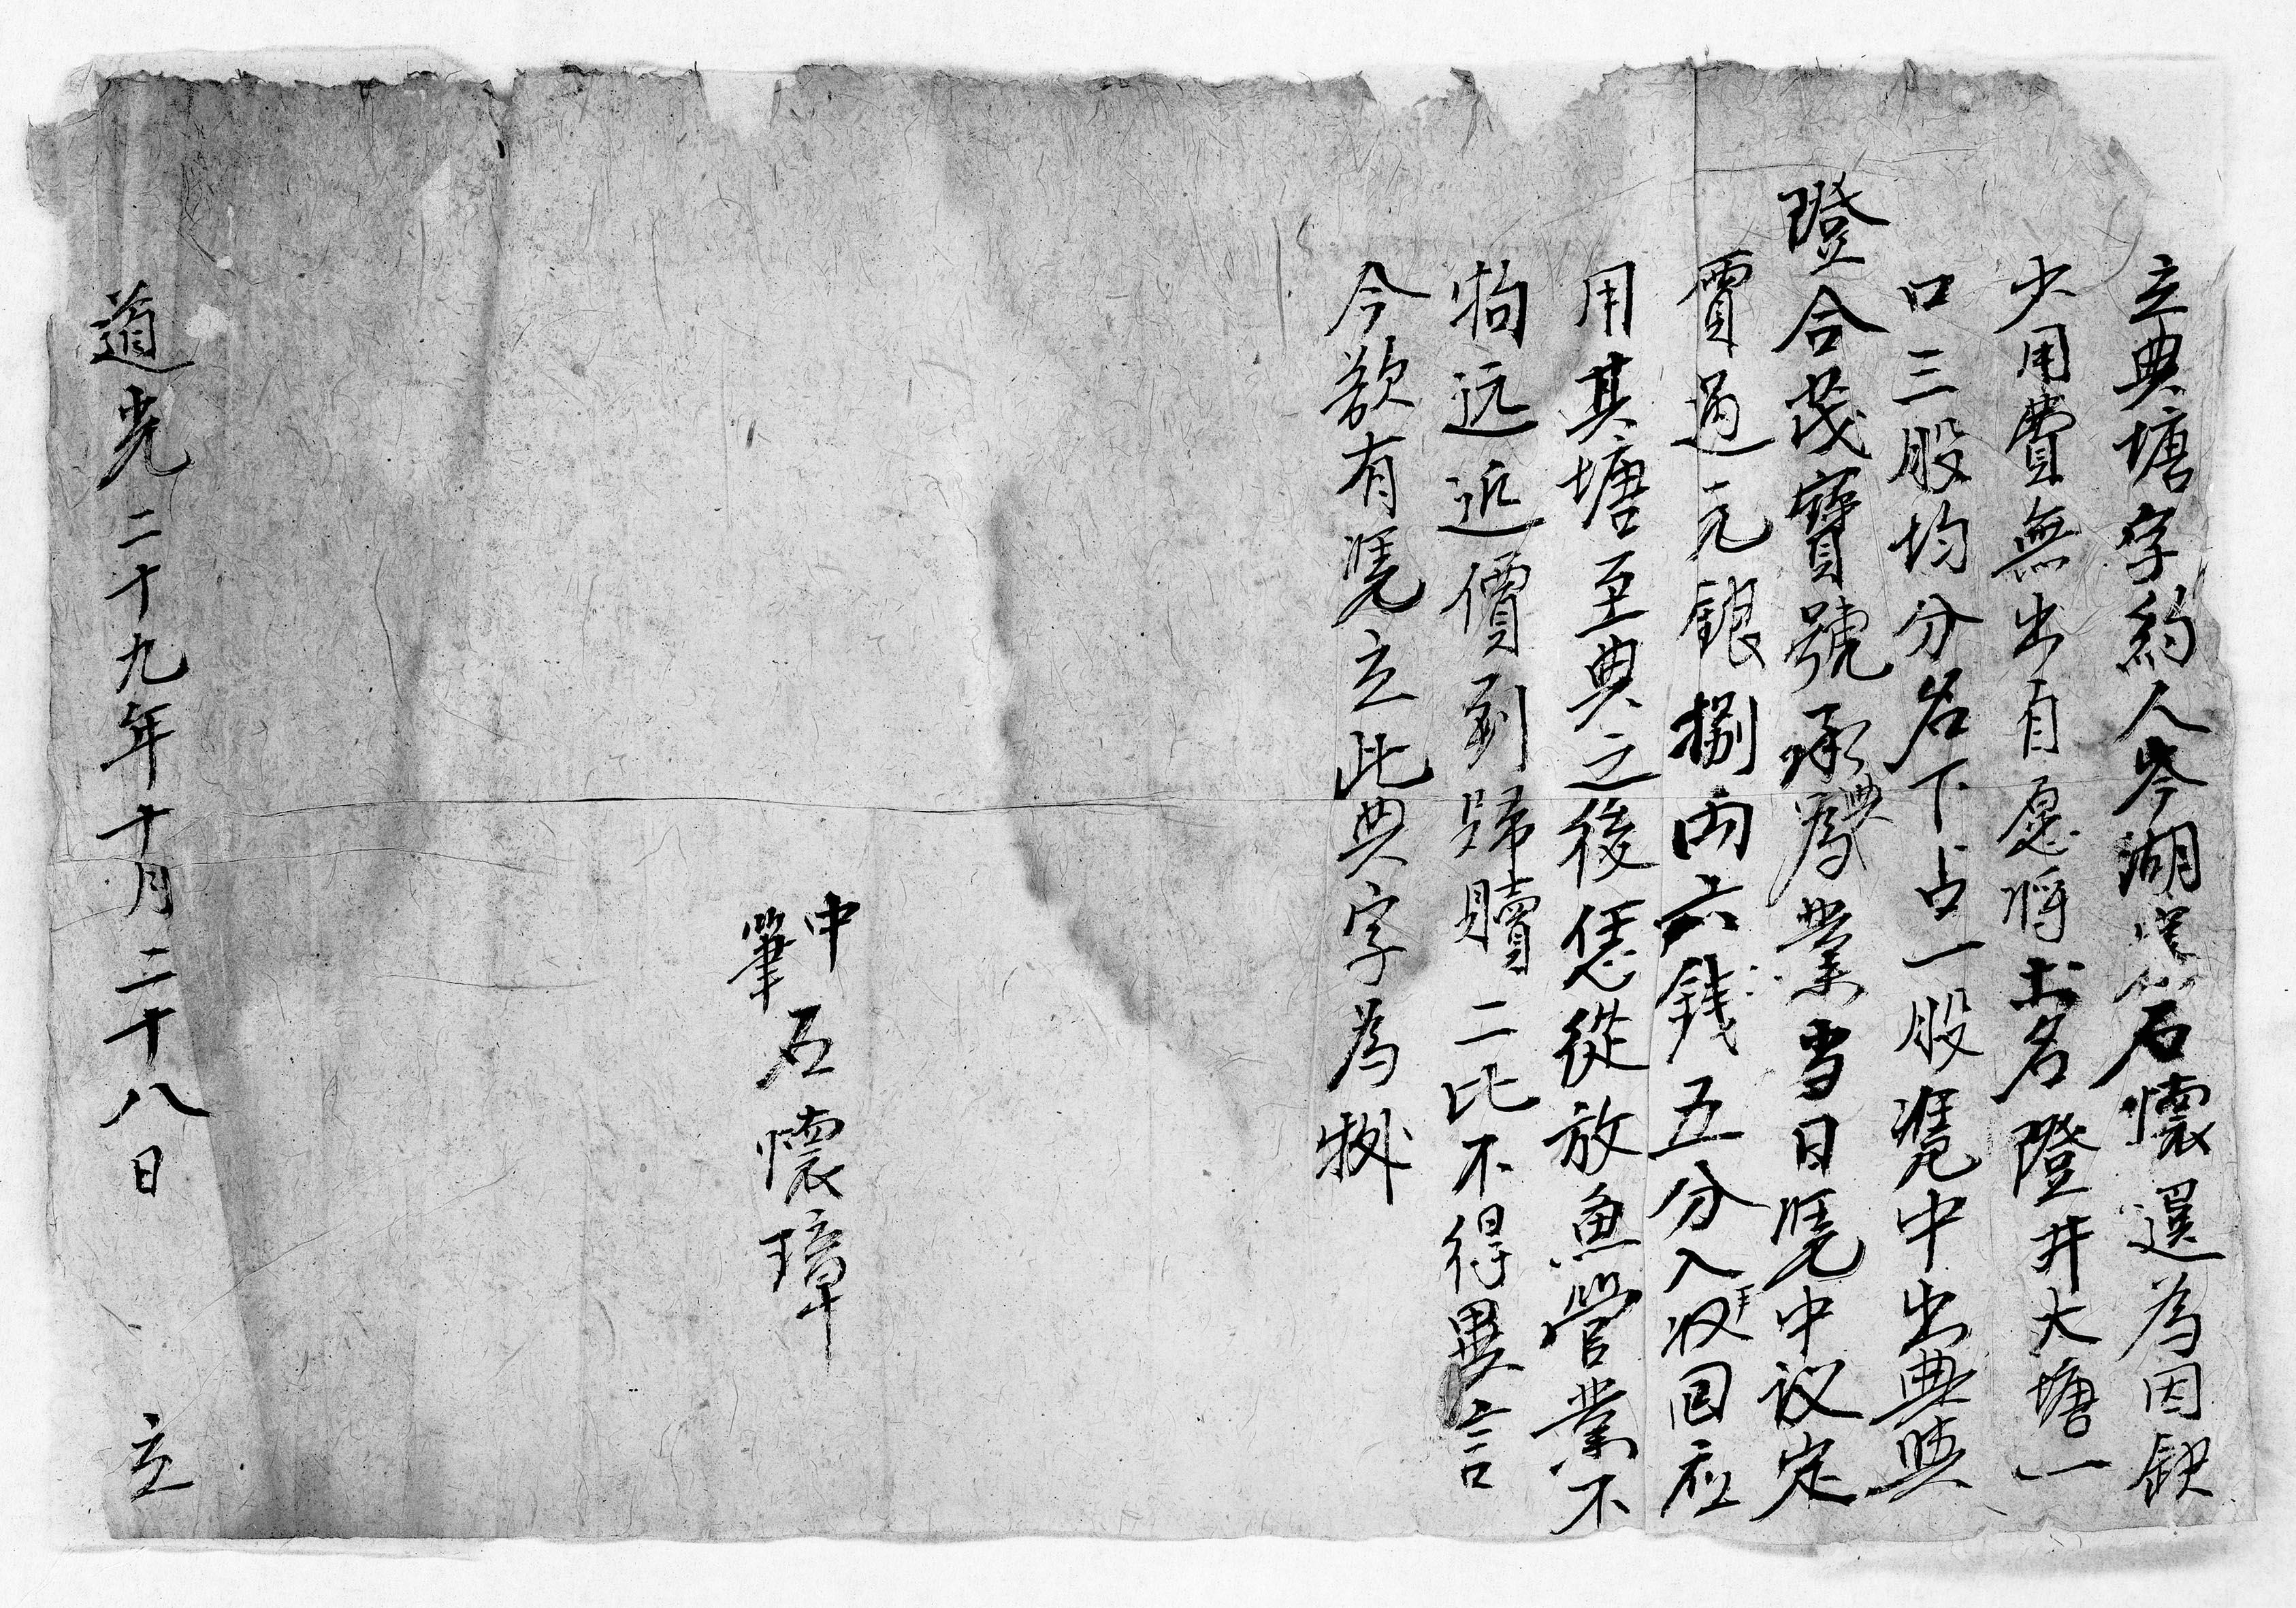 立典塘字約人岑湖堡石懷選為因缺
少用費無出自愿将土名隥井大塘一
口三股均分名下占一股凴中出典與
隥合茂寶號承典為業当日凴中议定
賈過元銀捌両六銭五分入手収回应
用其塘至典之後恁從放魚管業不
拘远近價到歸贖二比不得異言
今欲有凴立此典字為拠
中
筆
石懷璋
道光二十九年十月二十八日 立